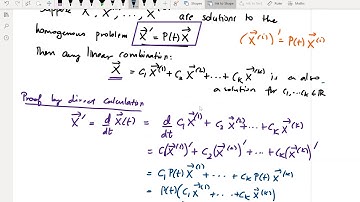 Suppose X⃗⁽¹⁾, X⃗⁽²⁾, ..., X⃗⁽ᵏ⁾ are solutions to the
homogenous problem X⃗' = P(t) X⃗
(X⃗⁽ⁱ⁾)' = P(t) X⃗⁽ⁱ⁾
Then any linear combination:
X⃗ = C₁ X⃗⁽¹⁾ + C₂ X⃗⁽²⁾ + ... + Cₖ X⃗⁽ᵏ⁾ is a also
a solution for C₁, ... Cₖ ∈ ℝ
Proof by direct calculation
X⃗' = d/dt X⃗(t) = d/dt C₁ X⃗⁽¹⁾ + C₂ X⃗⁽²⁾ + ... + Cₖ X⃗⁽ᵏ⁾
= C₁(X⃗⁽¹⁾)' + C₂(X⃗⁽²⁾)' + ... + Cₖ(X⃗⁽ᵏ⁾)'
= C₁ P(t) X⃗⁽¹⁾ + ... + Cₖ P(t) X⃗⁽ᵏ⁾
= P(t)(C₁ X⃗⁽¹⁾ + ... + Cₖ X⃗⁽ᵏ⁾)